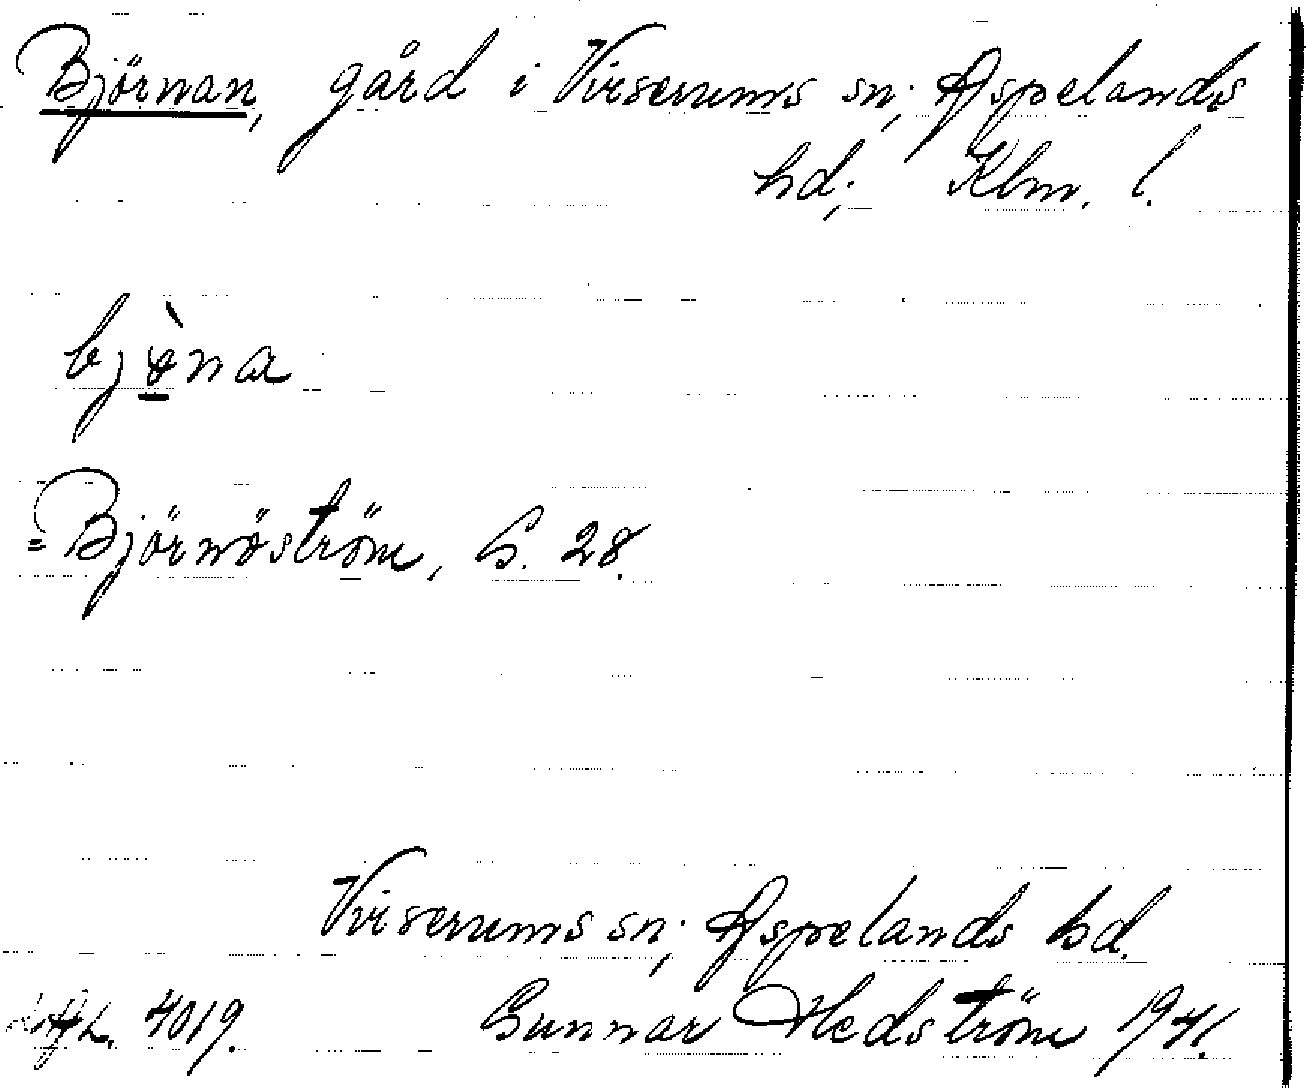 Björnan, gård i Virserums sn; Aspelands
hd; Klm. l.
bjø̀na
= Björnöström, G. 28.
Virserums sn; Aspelands hd.
4019. Gunnar Hedström 1941.